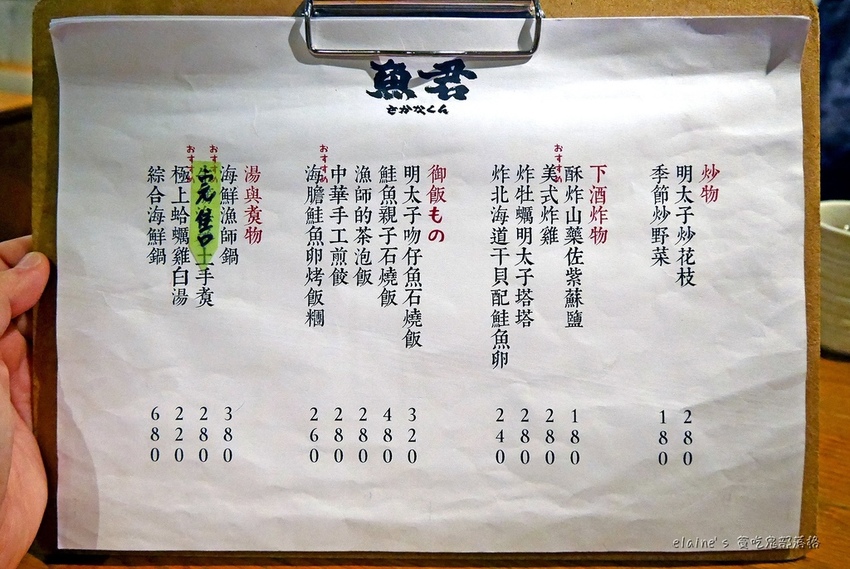 魚君
さかなくん
炒物
明太子炒花枝 280
季節炒野菜 180
下酒炸物
酥炸山藥佐紫蘇鹽 180
おすすめ
美式炸雞 280
炸牡蠣明太子塔塔 280
炸北海道干貝配鮭魚卵 240
御飯もの
明太子吻仔魚石燒飯 320
鮭魚親子石燒飯 480
漁師的茶泡飯 280
中華手工煎餃 280
おすすめ
海膽鮭魚卵烤飯糰 260
湯與煮物
海鮮漁師鍋 380
おすすめ
土手煮 280
おすすめ
極上蛤蠣雞白湯 220
綜合海鮮鍋 680
elaine's 貪吃鬼部落格